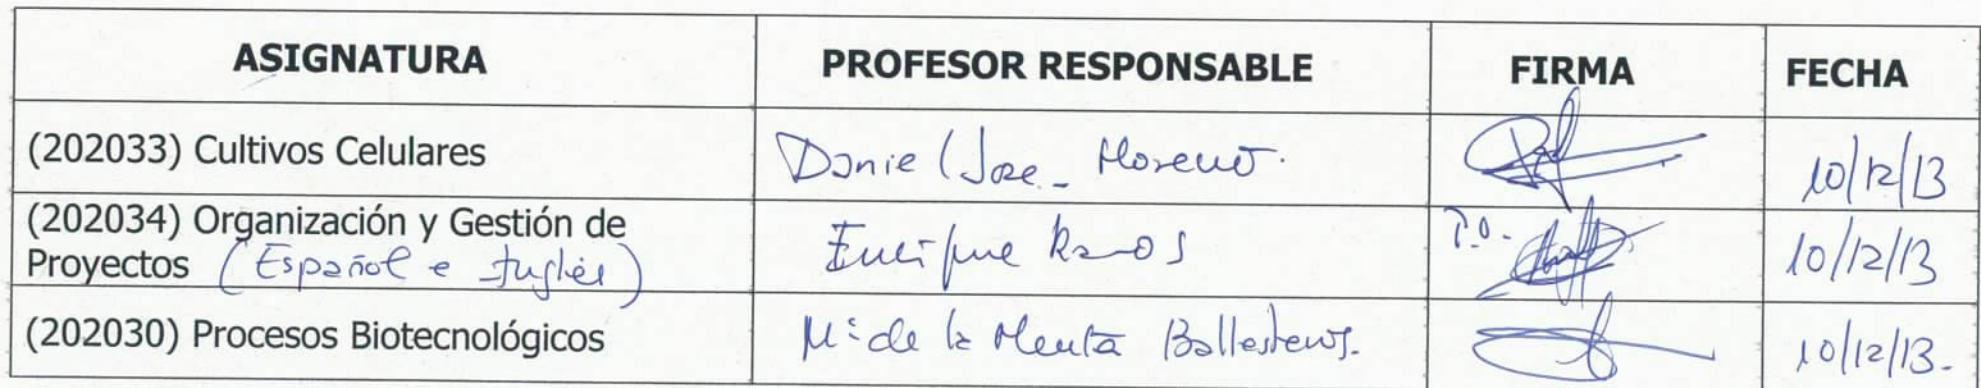 ASIGNATURA PROFESOR RESPONSABLE FIRMA FECHA
(202033) Cultivos Celulares Daniel Jose Moreno. 10/12/13
(202034) Organización y Gestión de
Proyectos (Español e Inglés) Enrique Ramos P.O. 10/12/13
(202030) Procesos Biotecnológicos Mª de la Menta Ballesteros. 10/12/13.